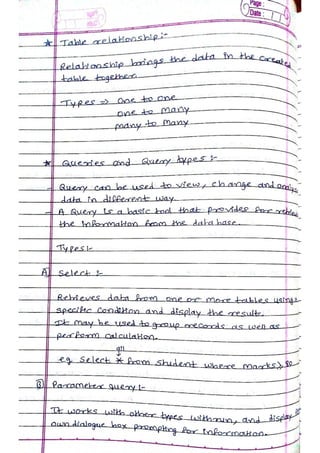 Page :
Date :
* Table relationship :-
Relationship brings the data in the created
table together
Types => One to one
one to many
many to many
* Queries and Query types :-
- Query can be used to view, change and
data in different way.
- A Query is a basic tool that provides for
the information from the database.
Types :-
A) Select :-
Retrieves data from one or more tables using
specific condition and display the result.
It may be used to group records as well as
perform calculation.
all
eg Select * from student where marks > 80
B) Parameter query :-
It works with other types within, and display
own dialogue box prompting for information.